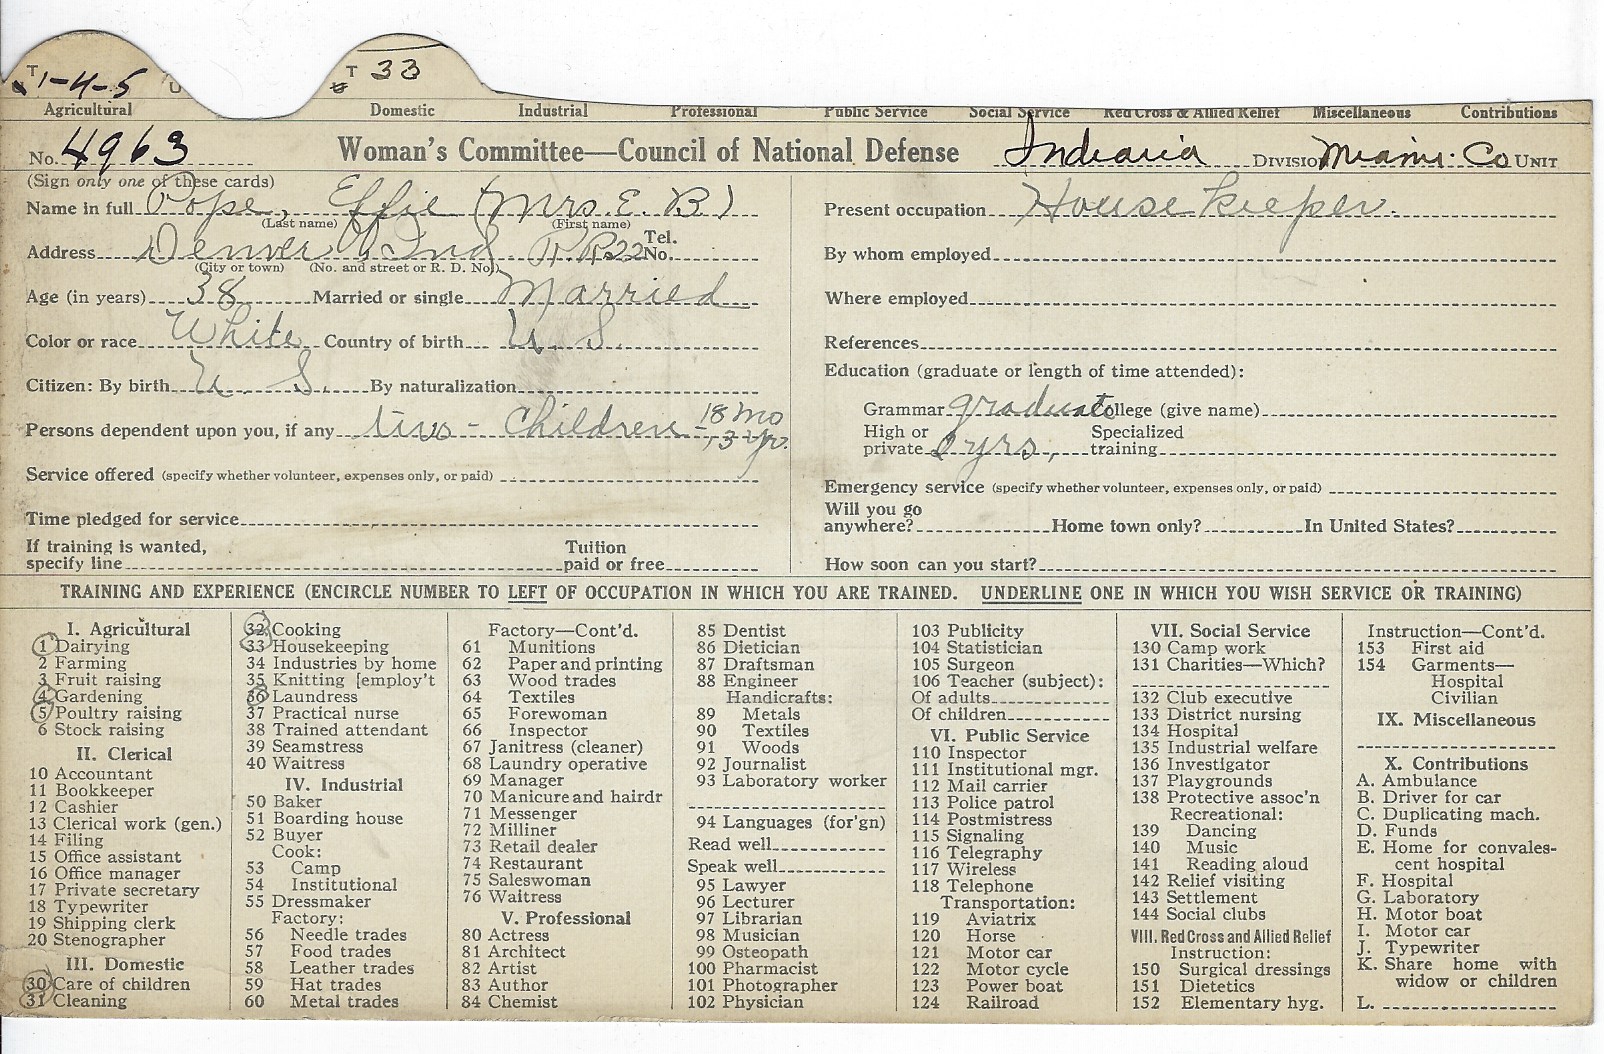 T 1-4-5 U T 33
Agricultural Domestic Industrial Professional Public Service Social Service Red Cross & Allied Relief Miscellaneous Contributions
No. 4963 Woman's Committee—Council of National Defense Indiana DIVISION Miami Co UNIT
(Sign only one of these cards)
Name in full Pope, Effie (Mrs. E. B.)
(Last name) (First name)
Address Denver Ind R.R. 22 Tel. No.
(City or town) (No. and street or R. D. No.)
Age (in years) 38 Married or single Married
Color or race White Country of birth U. S.
Citizen: By birth U. S. By naturalization
Persons dependent upon you, if any two - Children - 18 mo
13 yr.
Service offered (specify whether volunteer, expenses only, or paid)
Time pledged for service
If training is wanted, Tuition
specify line paid or free
Present occupation House Keeper.
By whom employed
Where employed
References
Education (graduate or length of time attended):
Grammar graduate College (give name)
High or Specialized
private 2 yrs, training
Emergency service (specify whether volunteer, expenses only, or paid)
Will you go
anywhere? Home town only? In United States?
How soon can you start?
TRAINING AND EXPERIENCE (ENCIRCLE NUMBER TO LEFT OF OCCUPATION IN WHICH YOU ARE TRAINED. UNDERLINE ONE IN WHICH YOU WISH SERVICE OR TRAINING)
I. Agricultural
1 Dairying
2 Farming
3 Fruit raising
4 Gardening
5 Poultry raising
6 Stock raising
II. Clerical
10 Accountant
11 Bookkeeper
12 Cashier
13 Clerical work (gen.)
14 Filing
15 Office assistant
16 Office manager
17 Private secretary
18 Typewriter
19 Shipping clerk
20 Stenographer
III. Domestic
30 Care of children
31 Cleaning
32 Cooking
33 Housekeeping
34 Industries by home
35 Knitting [employ't
36 Laundress
37 Practical nurse
38 Trained attendant
39 Seamstress
40 Waitress
IV. Industrial
50 Baker
51 Boarding house
52 Buyer
Cook:
53 Camp
54 Institutional
55 Dressmaker
Factory:
56 Needle trades
57 Food trades
58 Leather trades
59 Hat trades
60 Metal trades
Factory—Cont'd.
61 Munitions
62 Paper and printing
63 Wood trades
64 Textiles
65 Forewoman
66 Inspector
67 Janitress (cleaner)
68 Laundry operative
69 Manager
70 Manicure and hairdr
71 Messenger
72 Milliner
73 Retail dealer
74 Restaurant
75 Saleswoman
76 Waitress
V. Professional
80 Actress
81 Architect
82 Artist
83 Author
84 Chemist
85 Dentist
86 Dietician
87 Draftsman
88 Engineer
Handicrafts:
89 Metals
90 Textiles
91 Woods
92 Journalist
93 Laboratory worker
94 Languages (for'gn)
Read well
Speak well
95 Lawyer
96 Lecturer
97 Librarian
98 Musician
99 Osteopath
100 Pharmacist
101 Photographer
102 Physician
103 Publicity
104 Statistician
105 Surgeon
106 Teacher (subject):
Of adults
Of children
VI. Public Service
110 Inspector
111 Institutional mgr.
112 Mail carrier
113 Police patrol
114 Postmistress
115 Signaling
116 Telegraphy
117 Wireless
118 Telephone
Transportation:
119 Aviatrix
120 Horse
121 Motor car
122 Motor cycle
123 Power boat
124 Railroad
VII. Social Service
130 Camp work
131 Charities—Which?
132 Club executive
133 District nursing
134 Hospital
135 Industrial welfare
136 Investigator
137 Playgrounds
138 Protective assoc'n
Recreational:
139 Dancing
140 Music
141 Reading aloud
142 Relief visiting
143 Settlement
144 Social clubs
VIII. Red Cross and Allied Relief
Instruction:
150 Surgical dressings
151 Dietetics
152 Elementary hyg.
Instruction—Cont'd.
153 First aid
154 Garments—
Hospital
Civilian
IX. Miscellaneous
X. Contributions
A. Ambulance
B. Driver for car
C. Duplicating mach.
D. Funds
E. Home for convales-
cent hospital
F. Hospital
G. Laboratory
H. Motor boat
I. Motor car
J. Typewriter
K. Share home with
widow or children
L.